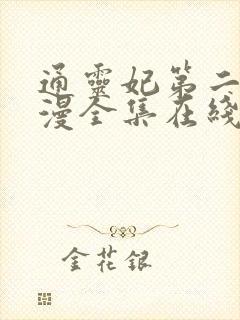 通靈妃第二
漫全集在綫
金花銀